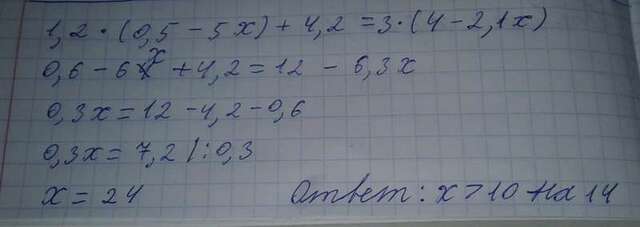 1,2·(0,5-5x)+4,2=3·(4-2,1x)
0,6-6x+4,2=12-6,3x
0,3x=12-4,2-0,6
0,3x=7,2 |:0,3
x=24 Ответ: x>10 на 14